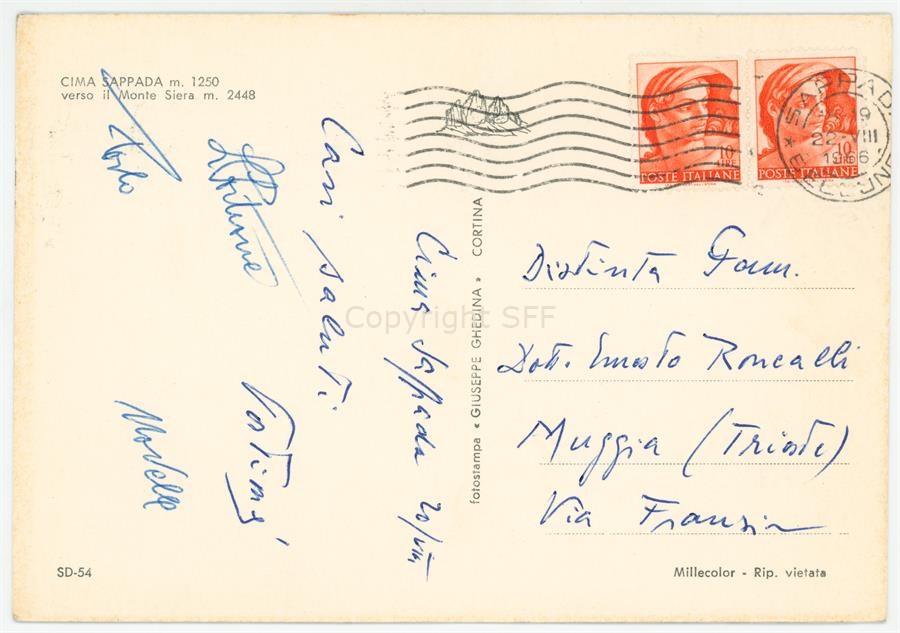 CIMA SAPPADA m. 1250
verso il Monte Siera m. 2448
Cima Sappada 20/VIII
Cari saluti
fotostampa « GIUSEPPE GHEDINA » CORTINA
10
LIRE
POSTE ITALIANE
10
LIRE
POSTE ITALIANE
SAPPADA
22 VIII
1966
BELLUNO
Distinta Fam.
Dott. Ernesto Roncalli
Muggia (Trieste)
Via
SD-54
Millecolor - Rip. vietata
Copyright SFF